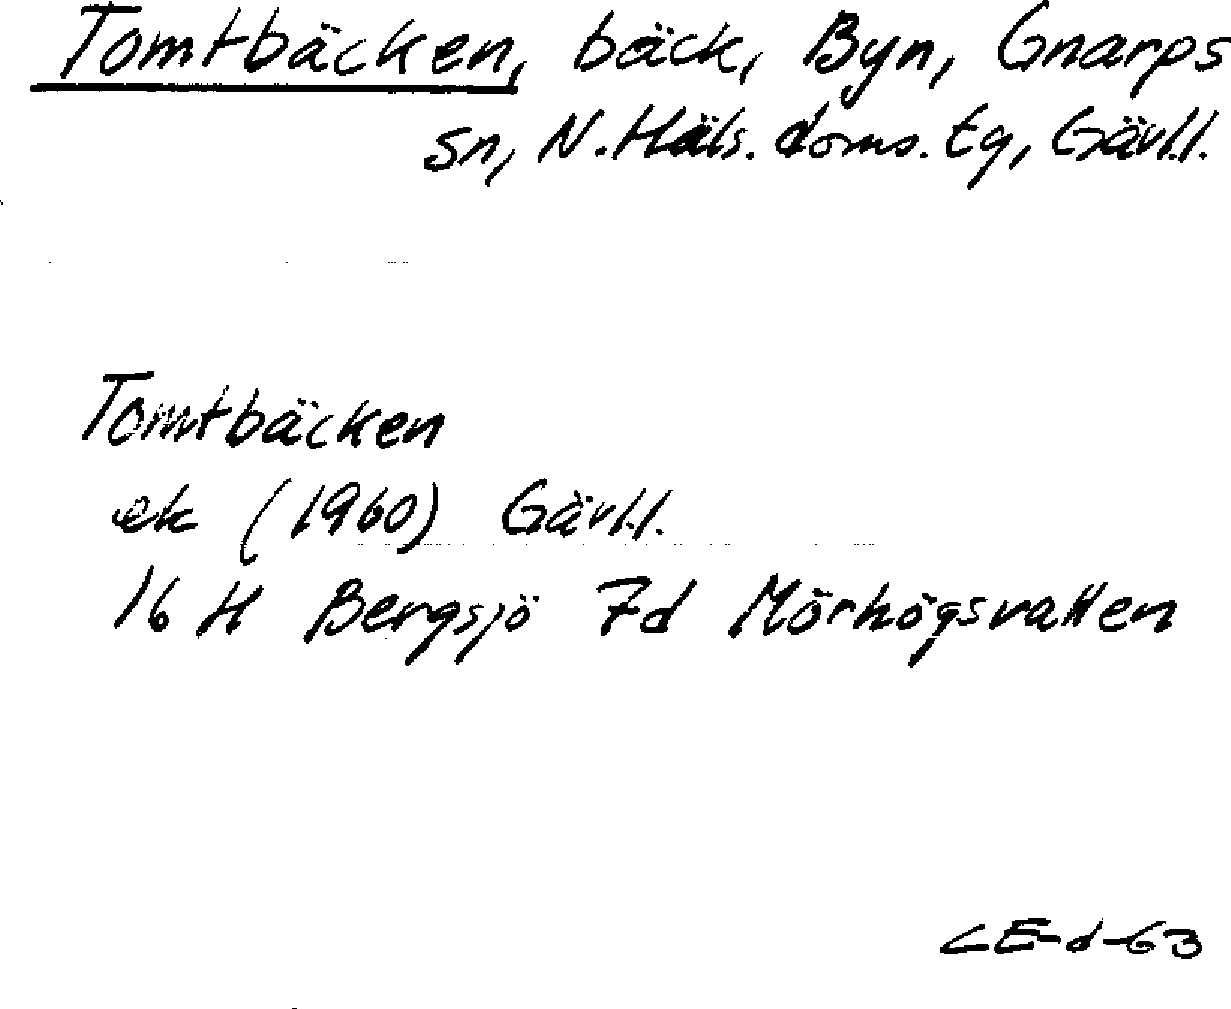 Tomtbäcken, bäck, Byn, Gnarps
sn, N. Häls. doms. tg, Gävl.l.
Tomtbäcken
ek (1960) Gävl.l.
16 H Bergsjö 7d Mörhögsvallen
CE-d-63